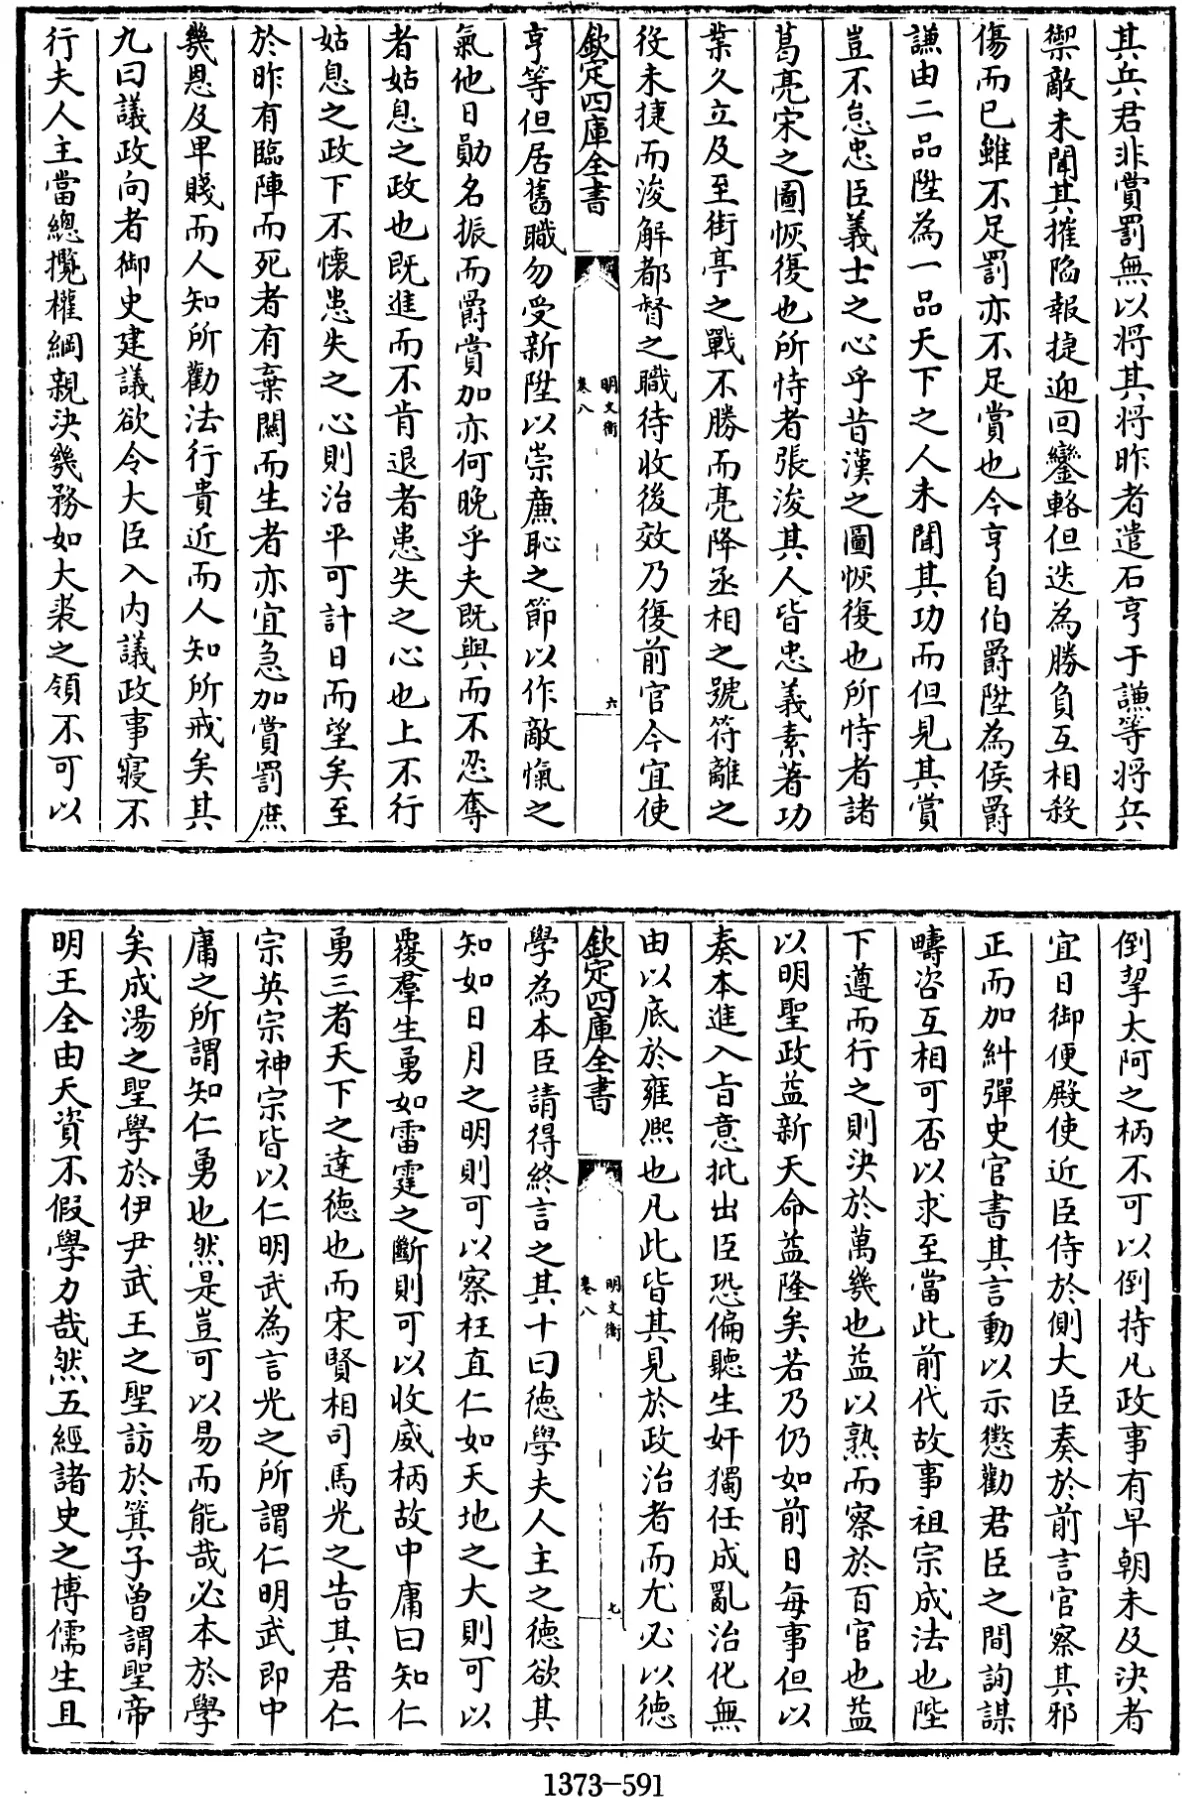 其兵君非賞罰無以將其將昨者遣石亨于謙等將兵
禦敵未聞其摧陷報捷迎回鑾輅但迭為勝負互相殺
傷而已雖不足罰亦不足賞也今亨自伯爵陞為侯爵
謙由二品陞為一品天下之人未聞其功而但見其賞
豈不怠忠臣義士之心乎昔漢之圖恢復也所恃者諸
葛亮宋之圖恢復也所恃者張浚其人皆忠義素著功
業久立及至街亭之戰不勝而亮降丞相之號符離之
役未捷而浚解都督之職待收後效乃復前官今宜使
欽定四庫全書
明文衡
卷八
六
亨等但居舊職勿受新陞以崇廉恥之節以作敵愾之
氣他日勛名振而爵賞加亦何晚乎夫既與而不忍奪
者姑息之政也既進而不肯退者患失之心也上不行
姑息之政下不懷患失之心則治平可計日而望矣至
於昨有臨陣而死者有棄關而生者亦宜急加賞罰庶
幾恩及卑賤而人知所勸法行貴近而人知所戒矣其
九曰議政向者御史建議欲令大臣入內議政事寢不
行夫人主當總攬權綱親決幾務如大裘之領不可以
倒挈太阿之柄不可以倒持凡政事有早朝未及決者
宜日御便殿使近臣侍於側大臣奏於前言官察其邪
正而加糾彈史官書其言動以示懲勸君臣之間詢謀
疇咨互相可否以求至當此前代故事祖宗成法也陛
下遵而行之則決於萬幾也益以熟而察於百官也益
以明聖政益新天命益隆矣若乃仍如前日每事但以
奏本進入旨意批出臣恐偏聽生奸獨任成亂治化無
由以底於雍熙也凡此皆其見於政治者而尤必以德
欽定四庫全書
明文衡
卷八
七
學為本臣請得終言之其十曰德學夫人主之德欲其
知如日月之明則可以察枉直仁如天地之大則可以
覆羣生勇如雷霆之斷則可以收威柄故中庸曰知仁
勇三者天下之達德也而宋賢相司馬光之告其君仁
宗英宗神宗皆以仁明武為言光之所謂仁明武即中
庸之所謂知仁勇也然是豈可以易而能哉必本於學
矣成湯之聖學於伊尹武王之聖訪於箕子曾謂聖帝
明王全由天資不假學力哉然五經諸史之博儒生且
1373-591